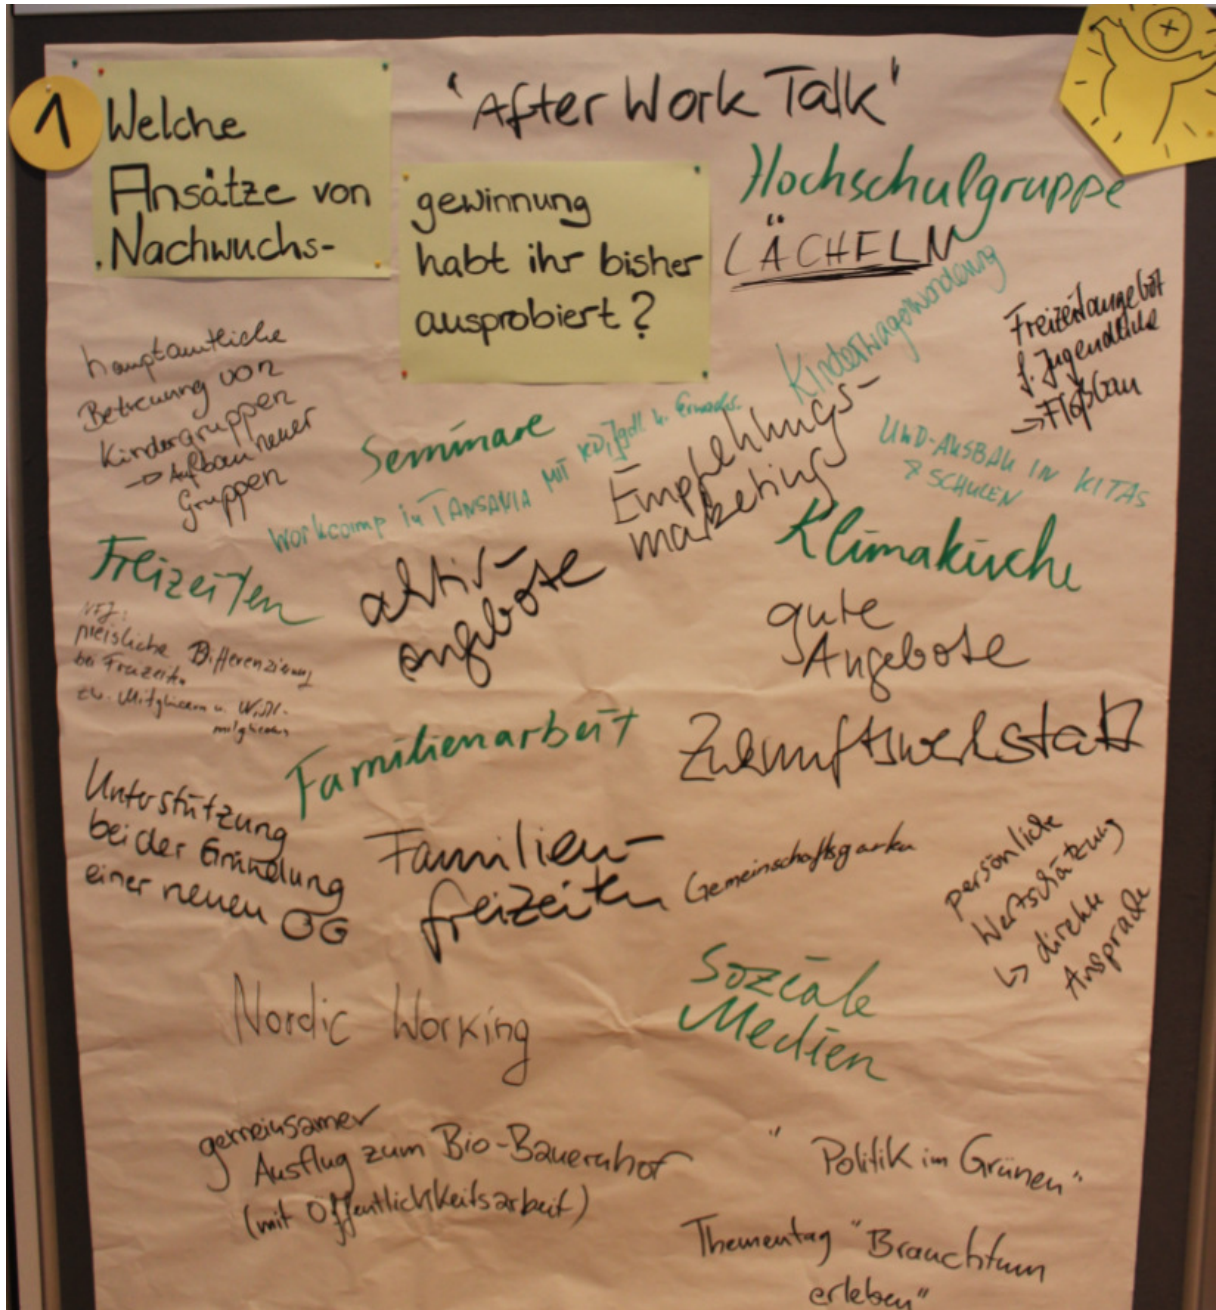 1
Welche
Ansätze von
Nachwuchs-
gewinnung
habt ihr bisher
ausprobiert?
"After Work Talk"
Hochschulgruppe
LÄCHELN
Kinderwagenwanderung
Freizeitangebot
f. Jugendliche
→ Floßbau
hauptamtliche
Betreuung von
Kindergruppen
→ Aufbau neuer
Gruppen
Seminare
Workcamp in TANSANIA MIT KD, Jgdl. u. Erwachs.
Empfehlungs-
marketing
UWD-AUSBAU IN KITAS
& SCHULEN
Freizeiten
aktiv-
angebote
Klimakirche
gute
Angebote
NFJ:
preisliche Differenzierung
bei Freizeiten
zw. Mitgliedern u. Nicht-
mitgliedern
Familienarbeit
Zukunftswerkstatt
Unterstützung
bei der Gründung
einer neuen OG
Familien-
freizeiten
Gemeinschaftsgarten
persönliche
Wertschätzung
↳ direkte
Ansprache
Nordic Working
Soziale
Medien
gemeinsamer
Ausflug zum Bio-Bauernhof
(mit Öffentlichkeitsarbeit)
"Politik im Grünen"
Thementag "Brauchtum
erleben"